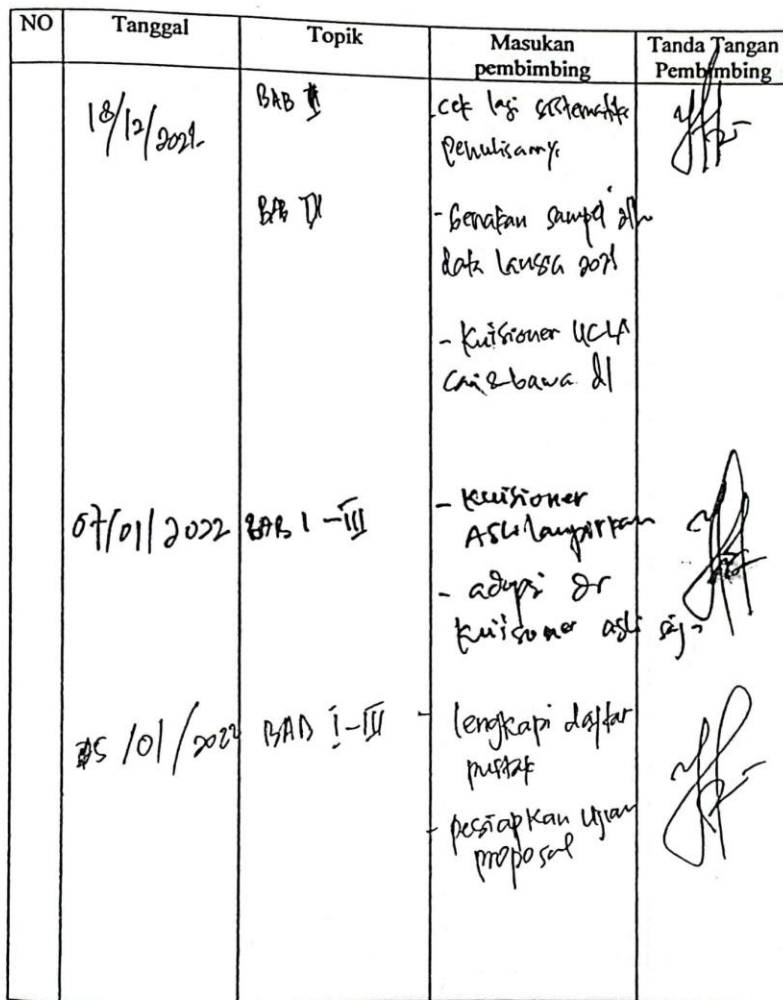 NO Tanggal Topik Masukan pembimbing Tanda Tangan Pembimbing
18/12/2021 BAB II cek lagi sistematika
penulisannya
BAB III - Gunakan sampel dr
data lansia 2021
- Kuisioner UCLA
cari & bawa
07/01/2022 BAB I - III - kuisioner
ASLI lampirkan
- adopsi dr
kuisioner asli
/01/2022 BAB I - III - lengkapi daftar
pustak
- persiapkan Ujian
proposal